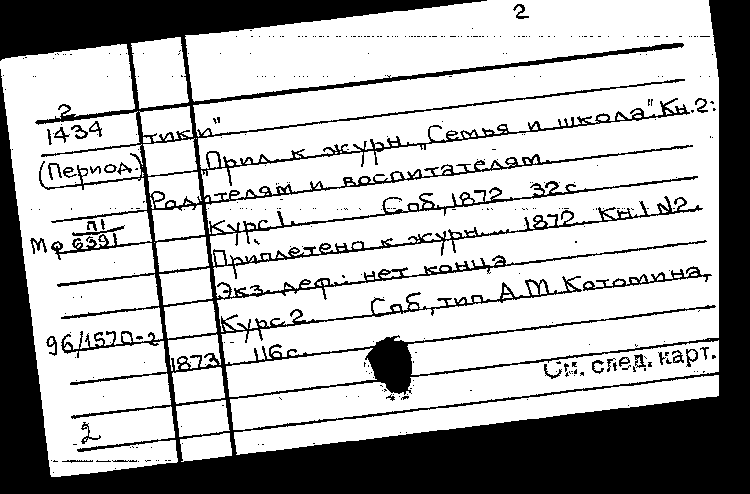 2
2
1434 тики"
(Период.) "Прил. к журн. „Семья и школа". Кн.2:
Родителям и воспитателям.
Курс 1. Спб., 1872. 32с.
Мф П1
6391
Приплетено к журн... 1872. Кн.1 №2.
Экз. деф.: нет конца
Курс 2. Спб., тип. А.М. Котомина,
96/1570-2
1873. 116с.
См. след. карт.
2